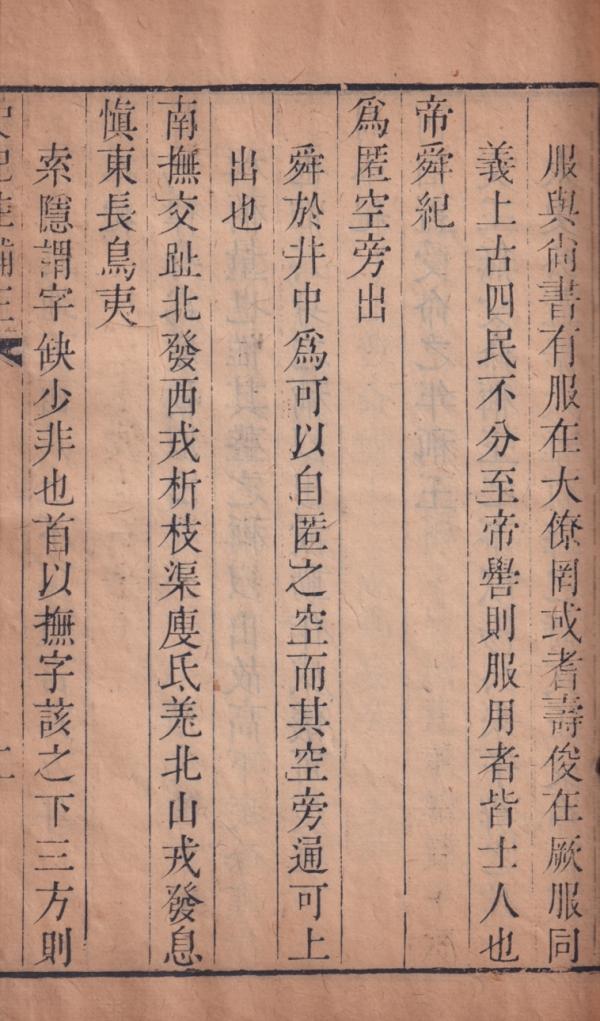 服與尙書有服在大僚罔或耆壽俊在厥服同
義上古四民不分至帝嚳則服用者皆士人也
帝舜紀
爲匿空旁出
舜於井中爲可以自匿之空而其空旁通可上
出也
南撫交趾北發西戎析枝渠廋氐羗北山戎發息
愼東長鳥夷
索隱謂字缺少非也首以撫字該之下三方則